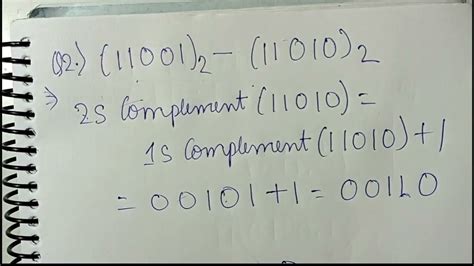 Q2.) (11001)₂ – (11010)₂
⇒ 2S Complement (11010) =
1S Complement (11010) + 1
= 00101 + 1 = 00110